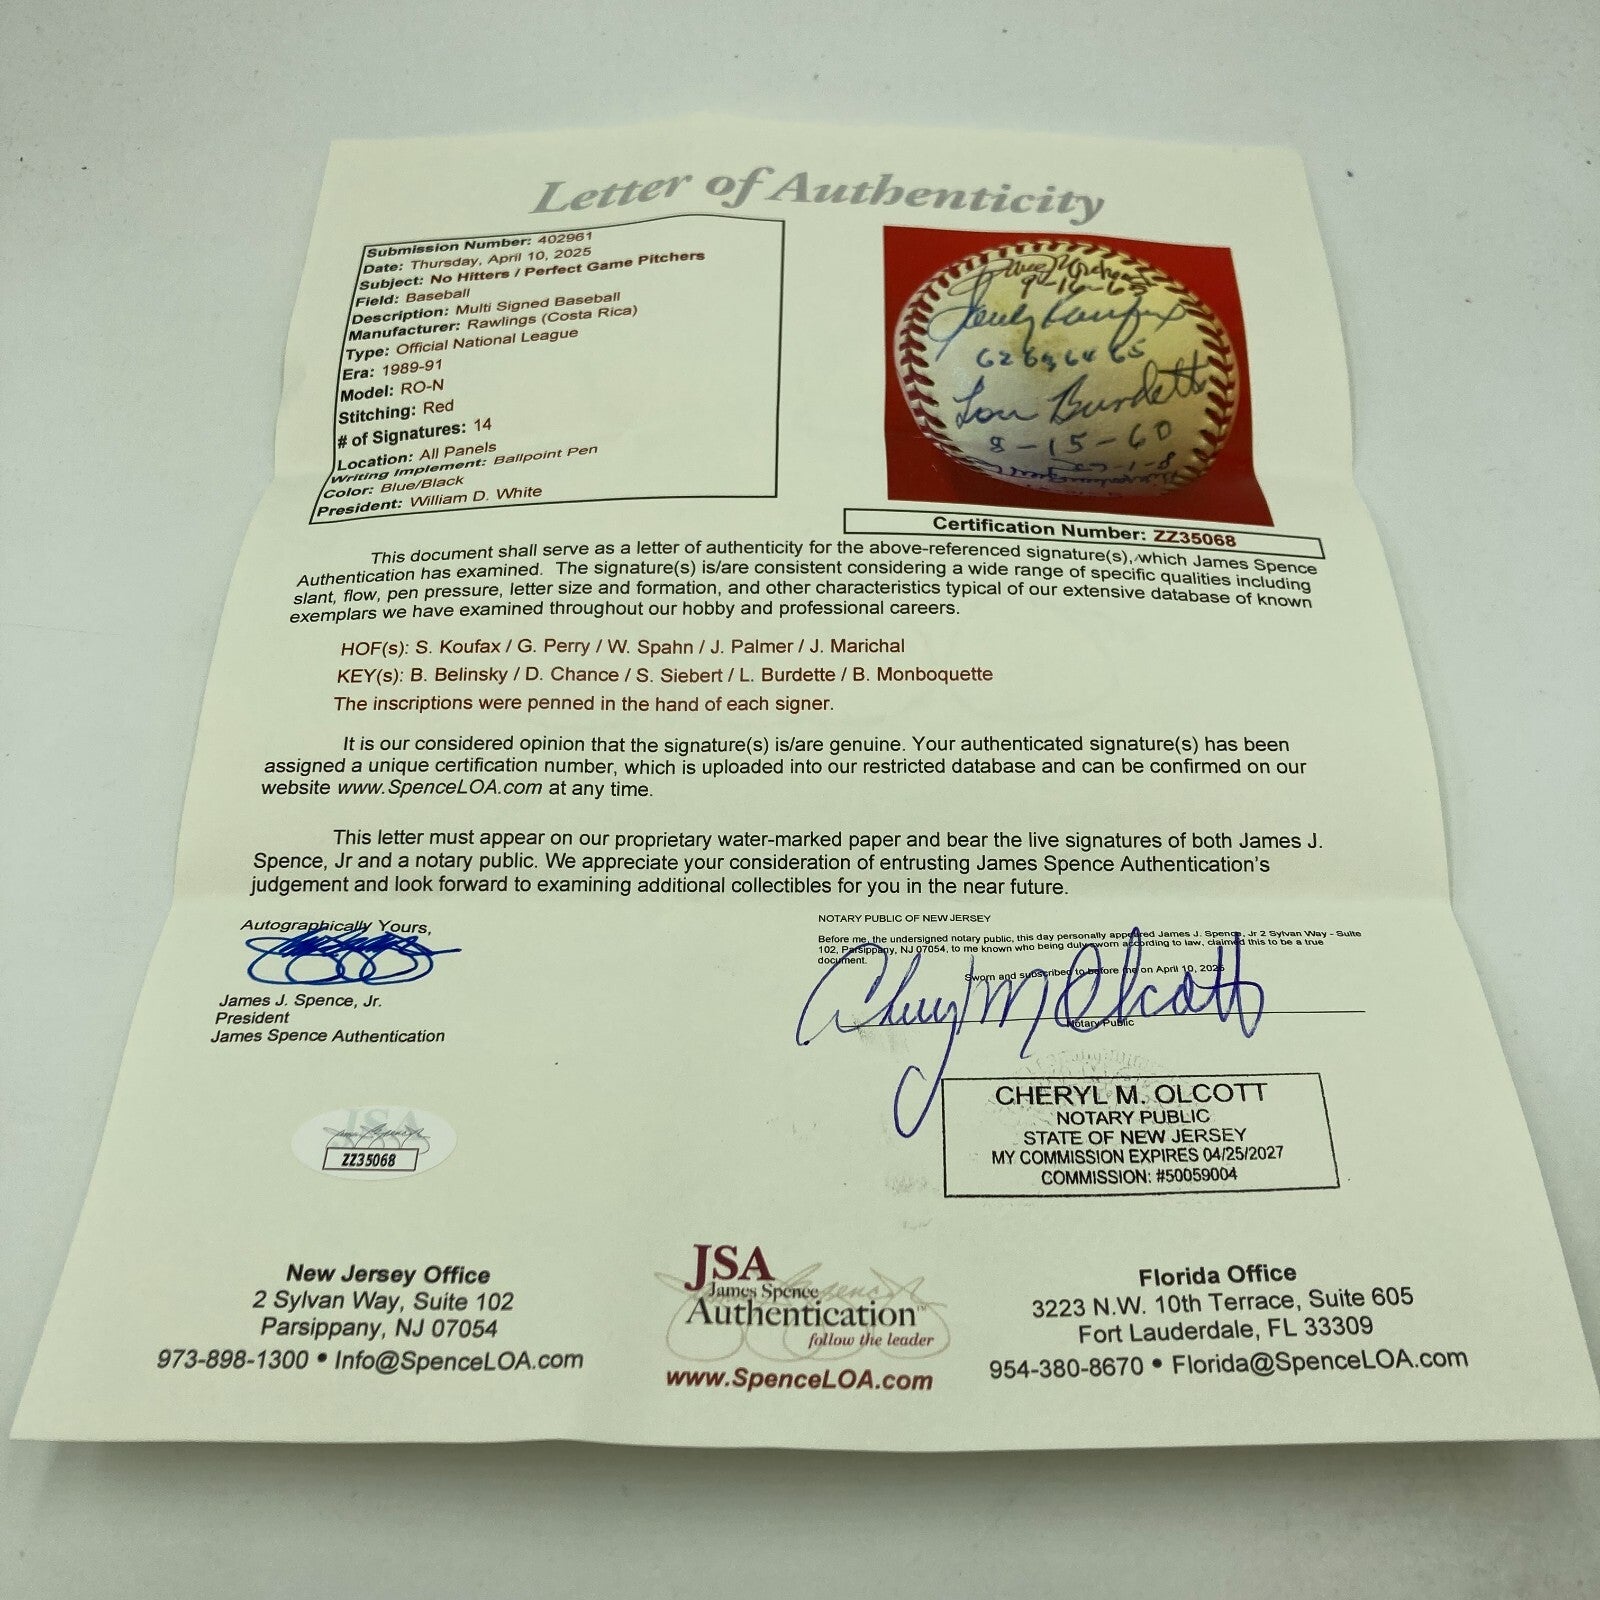 Letter of Authenticity
Submission Number: 402961
Date: Thursday, April 10, 2025
Subject: No Hitters / Perfect Game Pitchers
Field: Baseball
Description: Multi Signed Baseball
Manufacturer: Rawlings (Costa Rica)
Type: Official National League
Era: 1989-91
Model: RO-N
Stitching: Red
# of Signatures: 14
Location: All Panels
Writing Implement: Ballpoint Pen
Color: Blue/Black
President: William D. White
9-16-65
Sandy Koufax
62 63 64 65
Lou Burdette
8-15-60
Certification Number: ZZ35068
This document shall serve as a letter of authenticity for the above-referenced signature(s), which James Spence
Authentication has examined. The signature(s) is/are consistent considering a wide range of specific qualities including
slant, flow, pen pressure, letter size and formation, and other characteristics typical of our extensive database of known
exemplars we have examined throughout our hobby and professional careers.
HOF(s): S. Koufax / G. Perry / W. Spahn / J. Palmer / J. Marichal
KEY(s): B. Belinsky / D. Chance / S. Siebert / L. Burdette / B. Monboquette
The inscriptions were penned in the hand of each signer.
It is our considered opinion that the signature(s) is/are genuine. Your authenticated signature(s) has been
assigned a unique certification number, which is uploaded into our restricted database and can be confirmed on our
website www.SpenceLOA.com at any time.
This letter must appear on our proprietary water-marked paper and bear the live signatures of both James J.
Spence, Jr and a notary public. We appreciate your consideration of entrusting James Spence Authentication's
judgement and look forward to examining additional collectibles for you in the near future.
Autographically Yours,
James J. Spence, Jr.
President
James Spence Authentication
NOTARY PUBLIC OF NEW JERSEY
Before me, the undersigned notary public, this day personally appeared James J. Spence, Jr 2 Sylvan Way - Suite
102, Parsippany, NJ 07054, to me known who being duly sworn according to law, claimed this to be a true
document.
Sworn and subscribed to before me on April 10, 2025
Cheryl M Olcott
Notary Public
CHERYL M. OLCOTT
NOTARY PUBLIC
STATE OF NEW JERSEY
MY COMMISSION EXPIRES 04/25/2027
COMMISSION: #50059004
JSA
ZZ35068
New Jersey Office
2 Sylvan Way, Suite 102
Parsippany, NJ 07054
973-898-1300 • Info@SpenceLOA.com
JSA
James Spence
Authentication™
follow the leader
www.SpenceLOA.com
Florida Office
3223 N.W. 10th Terrace, Suite 605
Fort Lauderdale, FL 33309
954-380-8670 • Florida@SpenceLOA.com